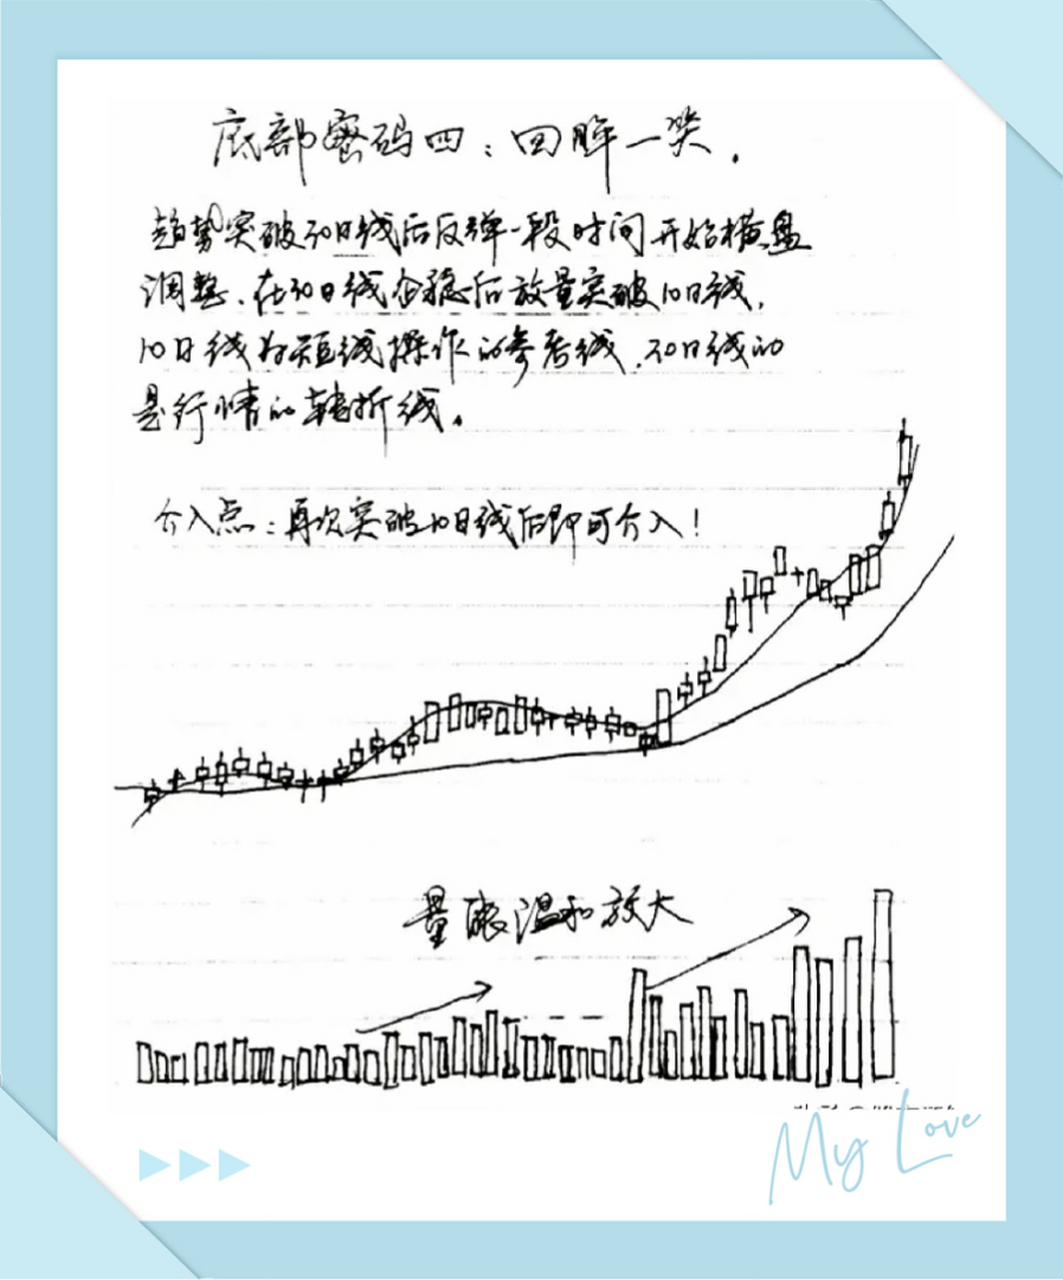 底部密码四：回眸一笑.
趋势突破30日线后反弹一段时间开始横盘
调整、在30日线企稳后放量突破10日线,
10日线为短线操作的参考线、30日线的
是行情的转折线。
介入点：再次突破10日线后即可介入！
量能温和放大
My Love